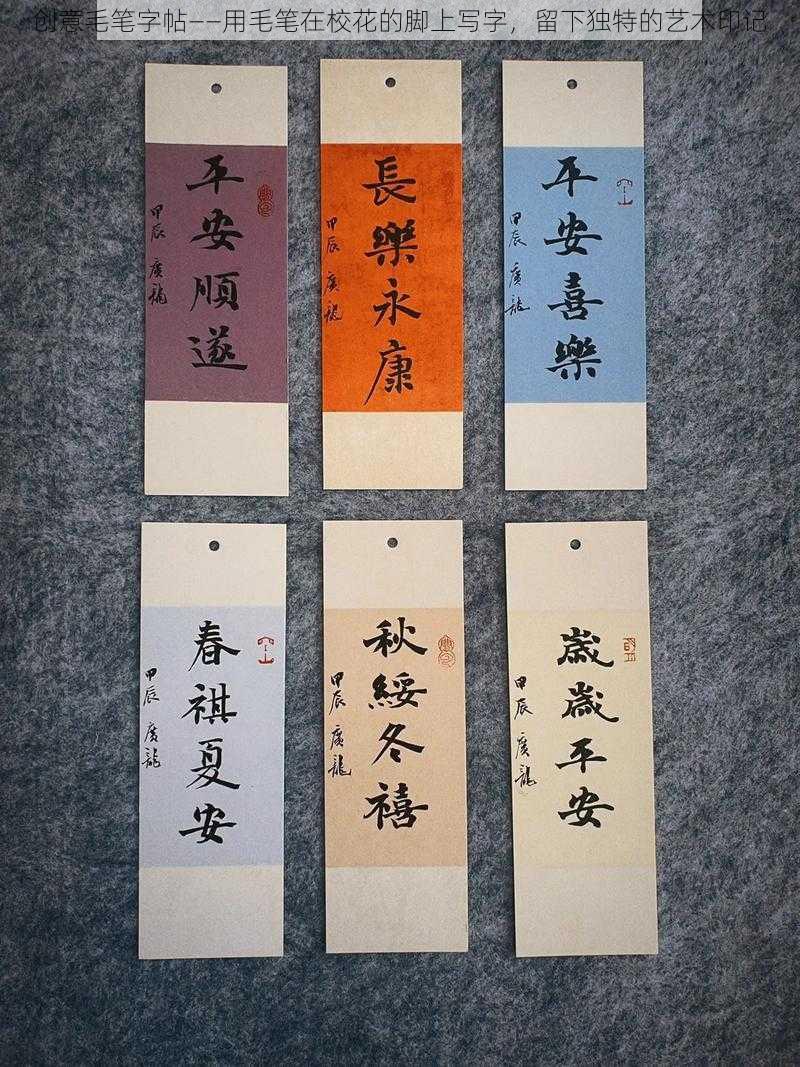 创意毛笔字帖——用毛笔在校花的脚上写字，留下独特的艺术印记
平安順遂
甲辰 廣龍
長樂永康
甲辰 廣龍
平安喜樂
甲辰 廣龍
春祺夏安
甲辰 廣龍
秋綏冬禧
甲辰 廣龍
歲歲平安
甲辰 廣龍